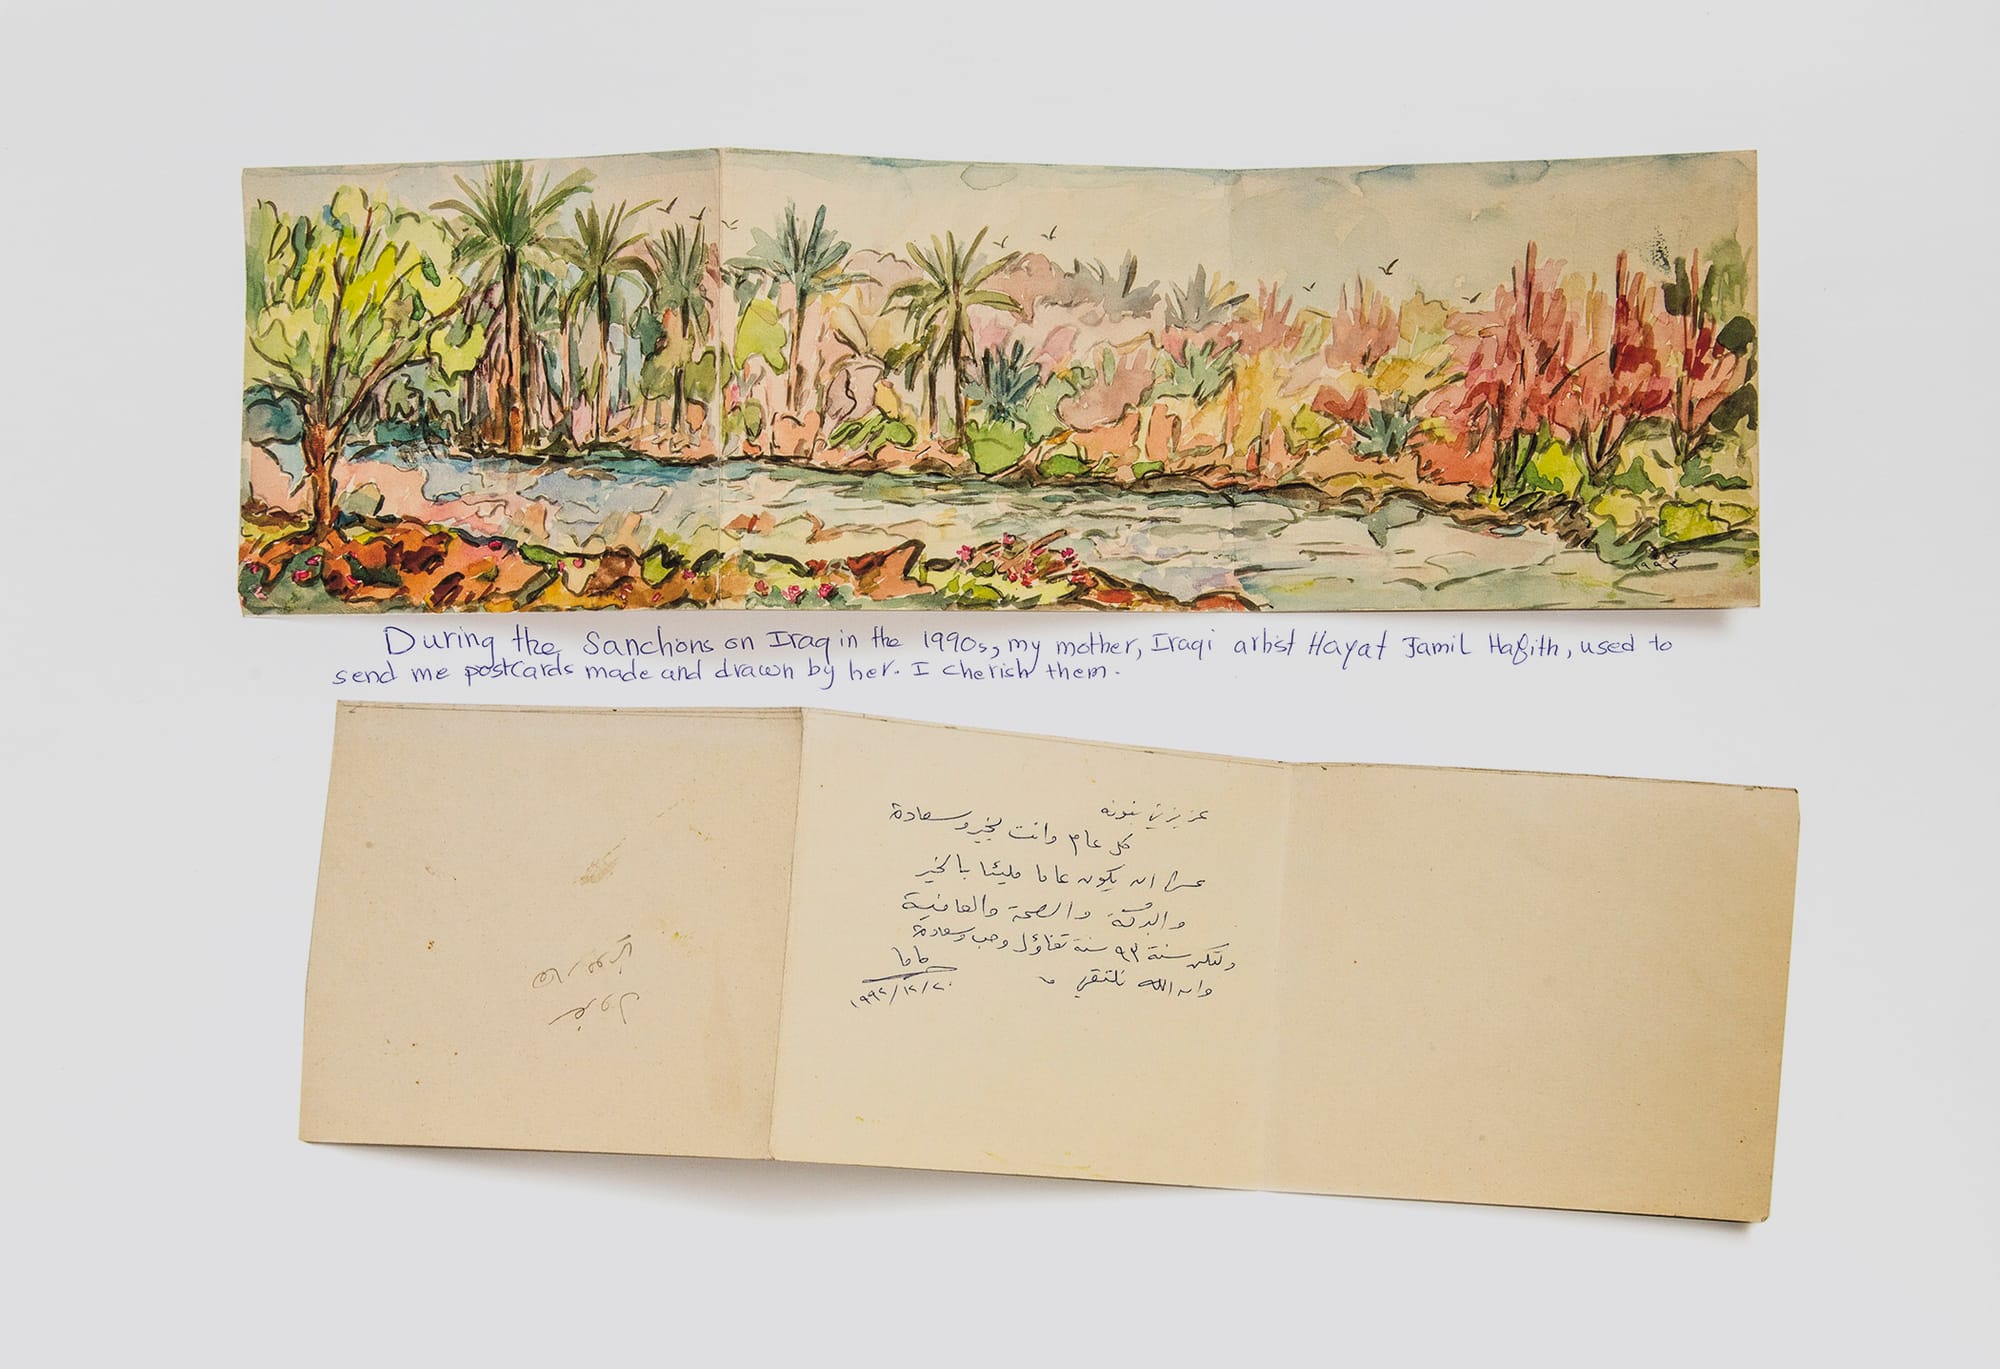 ١٩٩٢
During the Sanctions on Iraq in the 1990s, my mother, Iraqi artist Hayat Jamil Hafith, used to
send me postcards made and drawn by her. I cherish them.
عزيزتي بنونه
كل عام وانت بخير وسعادة
عسى ان يكون عاما مليئا بالخير
والبركة والصحة والعافية
ولتكن سنة ٩٣ سنة تفاؤل وحب وسعادة
وان الله نلتقي
ماما
١٩٩٢/١٢/٢٠